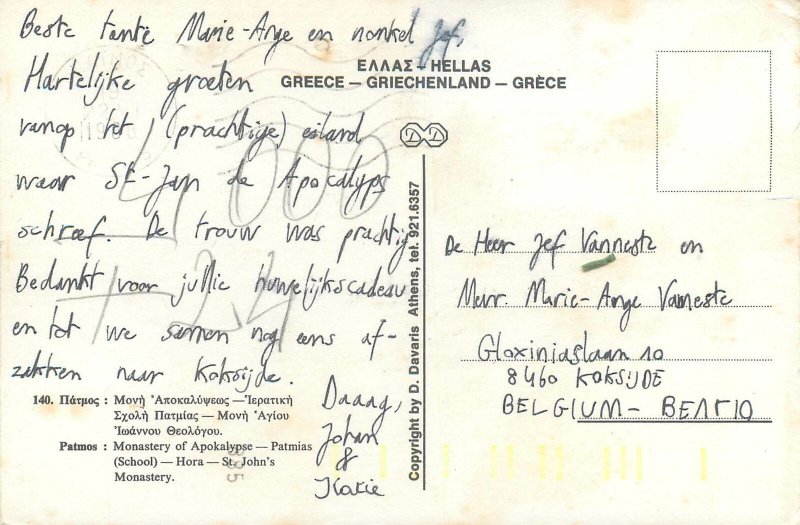 Beste tante Marie-Ange en nonkel Jef,
Hartelijke groeten
vanop het (prachtige) eiland
waar St-Jan de Apocalyps
schreef. De trouw was prachtig
Bedankt voor jullie huwelijkscadeau
en tot we samen nog eens af-
zakken naar Koksijde.
Daaag,
Johan
&
Katie
ΕΛΛΑΣ - HELLAS
GREECE - GRIECHENLAND - GRÈCE
D D
Copyright by D. Davaris Athens, tel. 921.6357
De Heer Jef Vanneste en
Mevr. Marie-Ange Vanneste
Gloxiniaslaan 10
8460 KOKSIJDE
BELGIUM - ΒΕΛΓΙΟ
140. Πάτμος : Μονὴ Ἀποκαλύψεως — Ἱερατικὴ
Σχολὴ Πατμίας — Μονὴ Ἁγίου
Ἰωάννου Θεολόγου.
Patmos : Monastery of Apokalypse — Patmias
(School) — Hora — St. John's
Monastery.